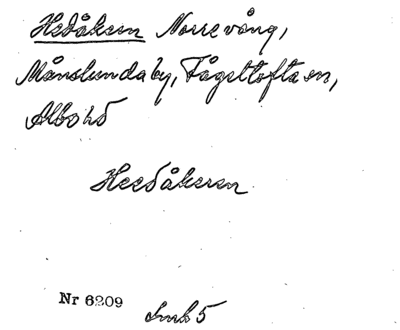 Hedåkern Norrevång,
Månslunda by, Fågeltofta sn,
Albo hd
Heedåkeren
Nr 6209